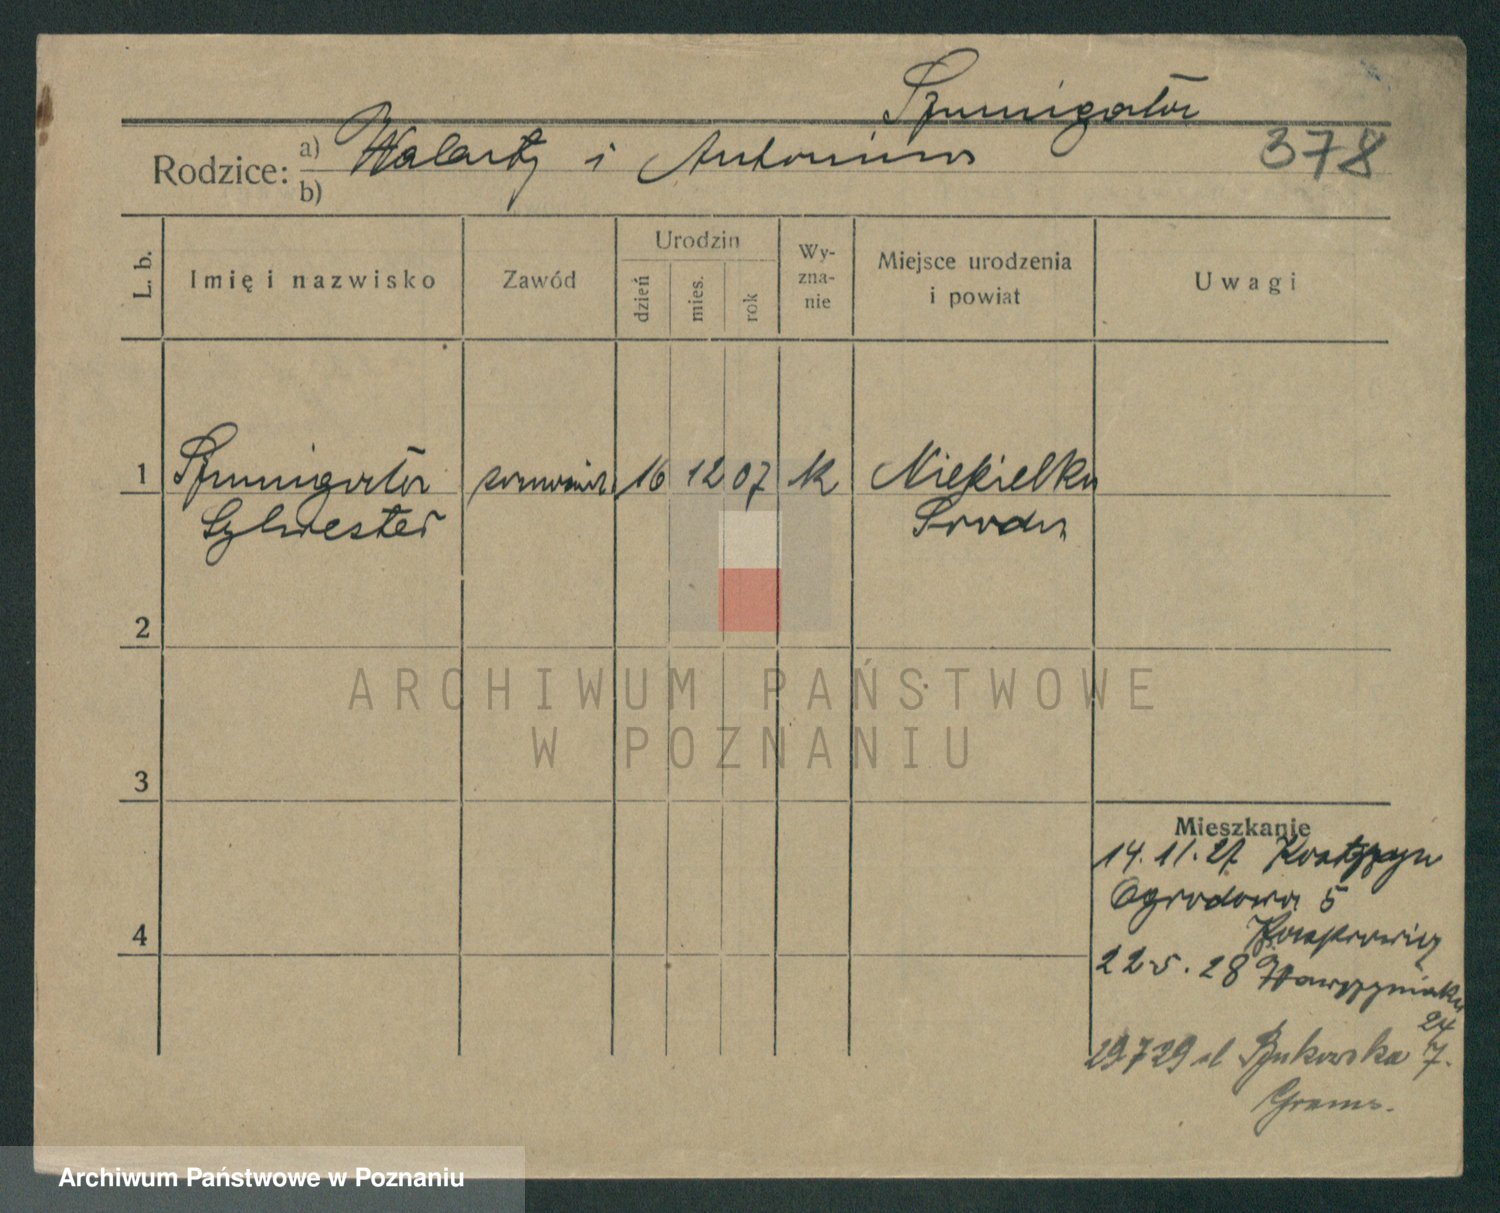 Szmigatór
378
Rodzice: a) Walenty i Antonina
b)
L. b. Imię i nazwisko Zawód Urodzin dzień mies. rok Wy-zna-nie Miejsce urodzenia i powiat Uwagi
1 16 12 07 k Niekielka
Sylwester Środa
2
ARCHIWUM PAŃSTWOWE
W POZNANIU
3
Mieszkanie
14.11.27 Kostrzyn
4 Ogrodowa 5
22.5.28 Wawrzyniaka
24
29 7 29 ul Bukowska 7.
Archiwum Państwowe w Poznaniu